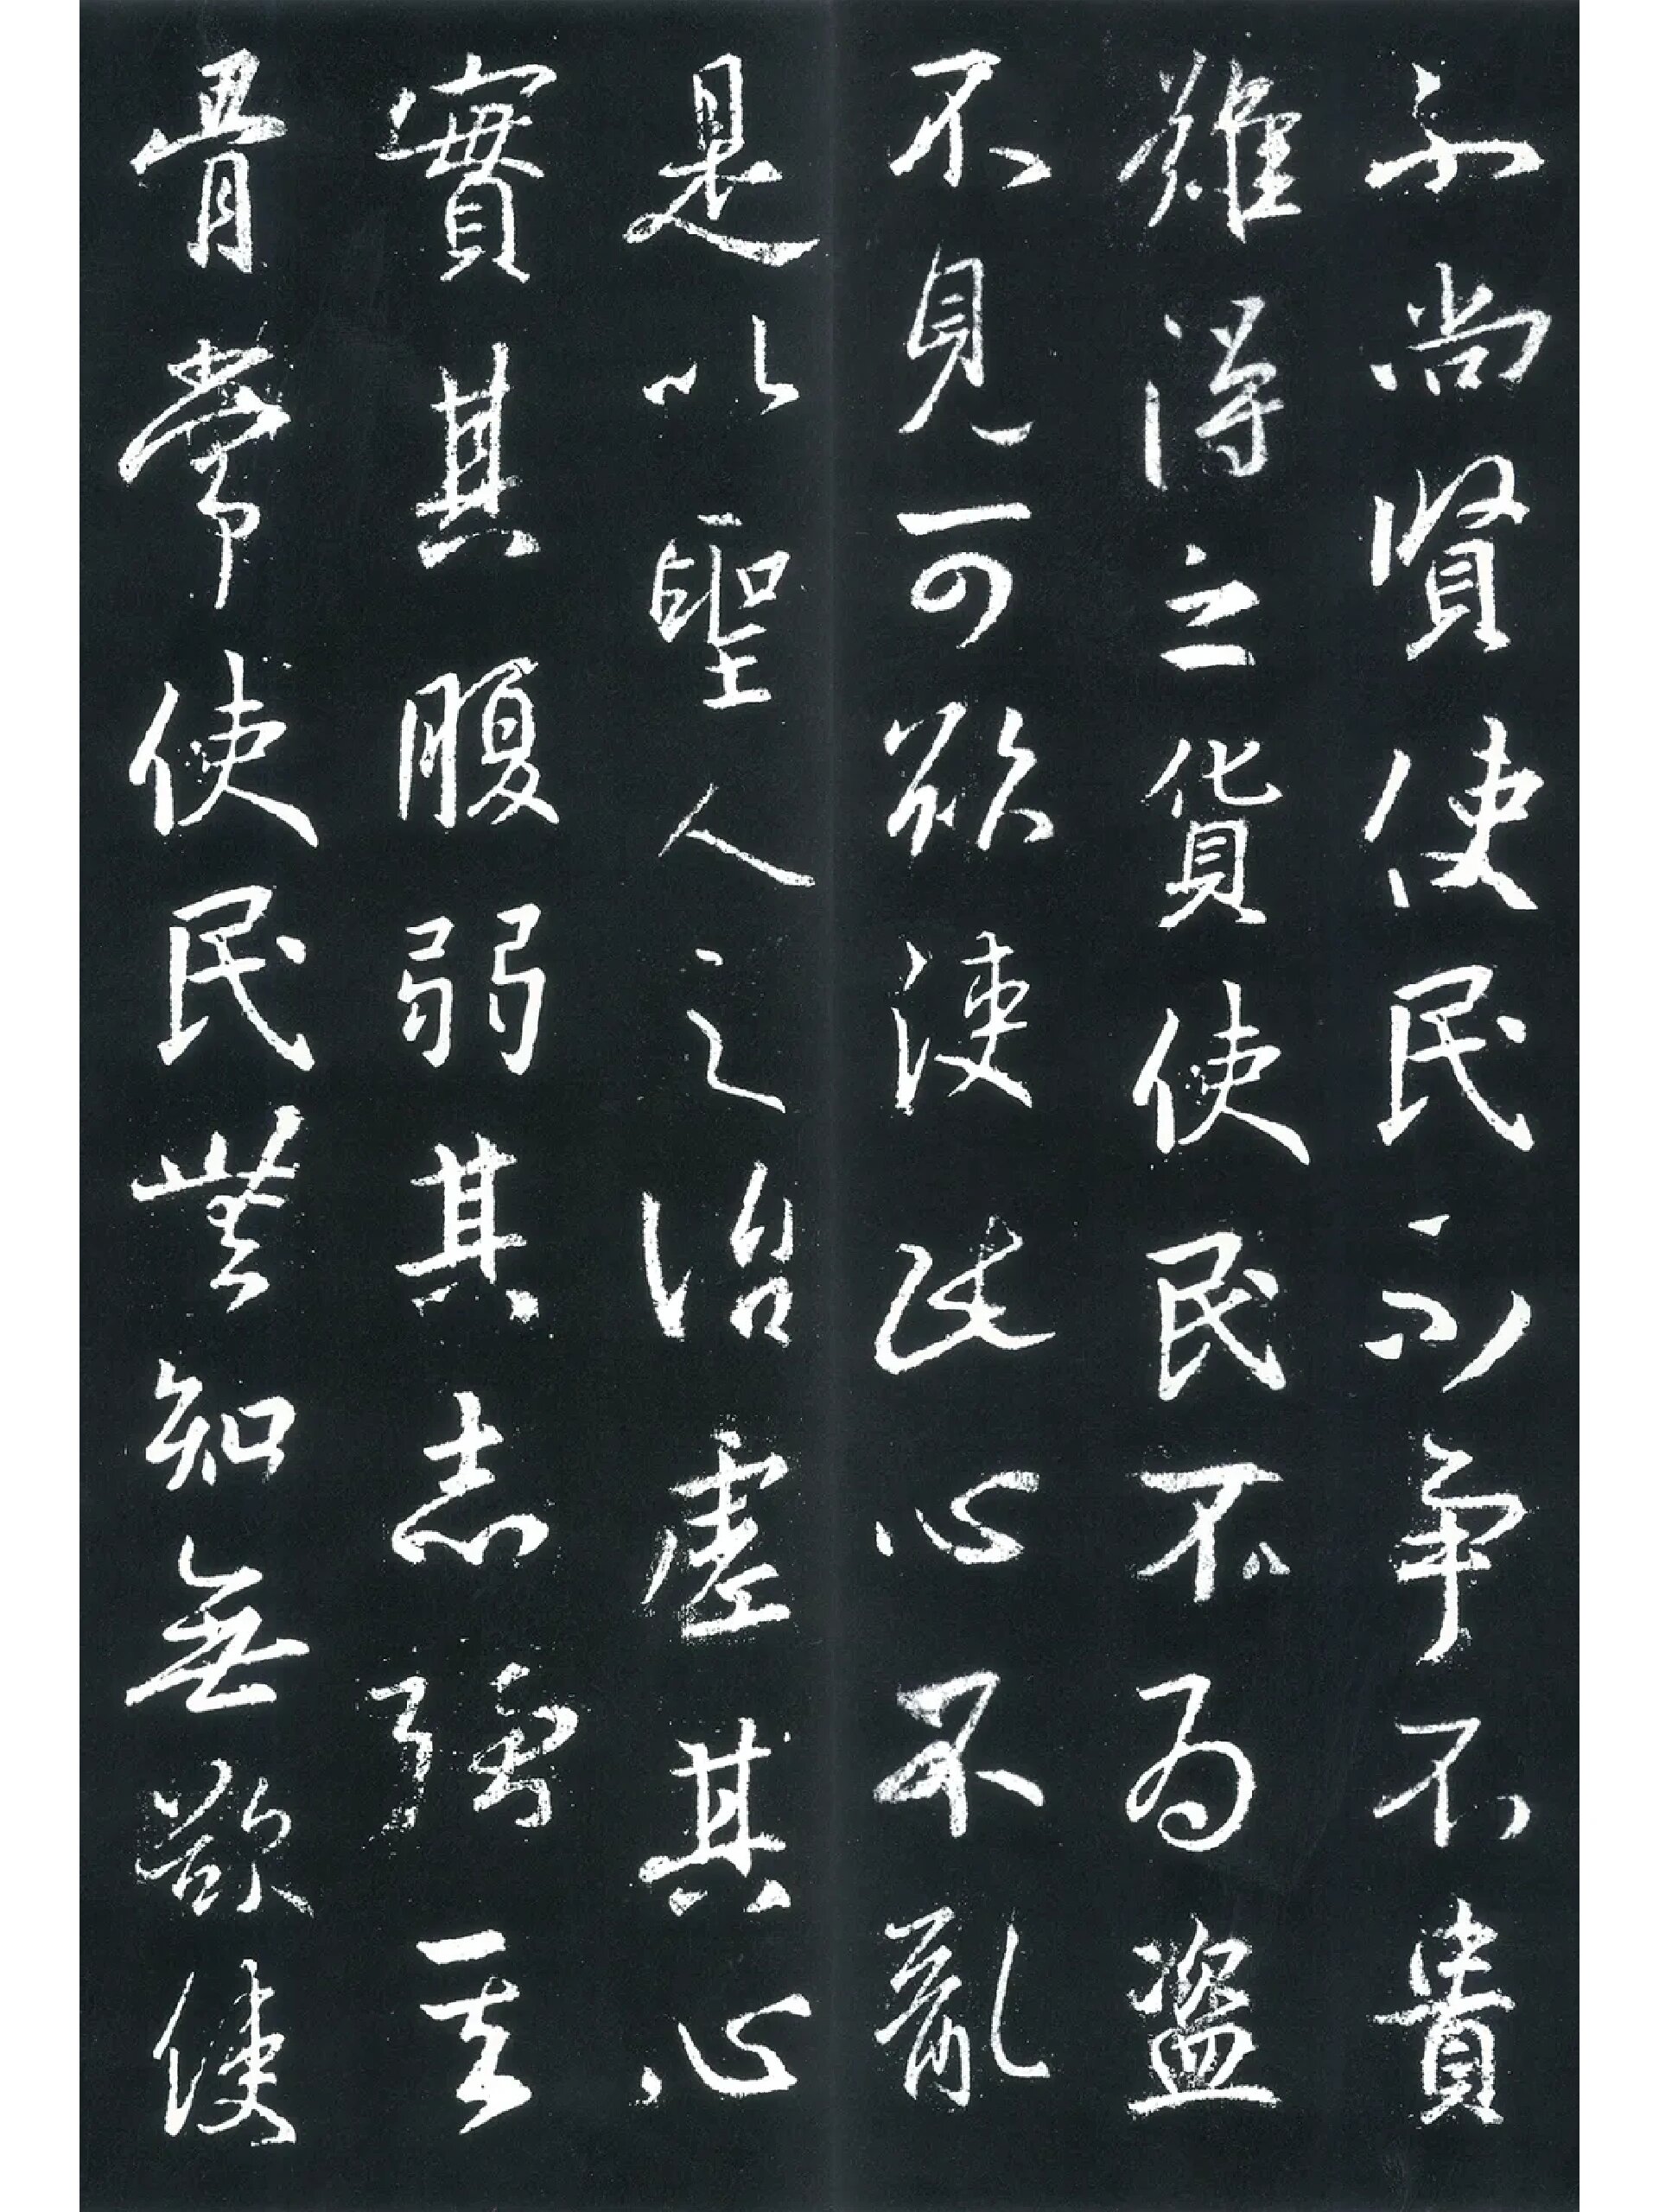 不尚賢使民不争不貴
難得之貨使民不為盗
不見可欲使民心不亂
是以聖人之治虛其心
實其腹弱其志強其
骨常使民無知無欲使